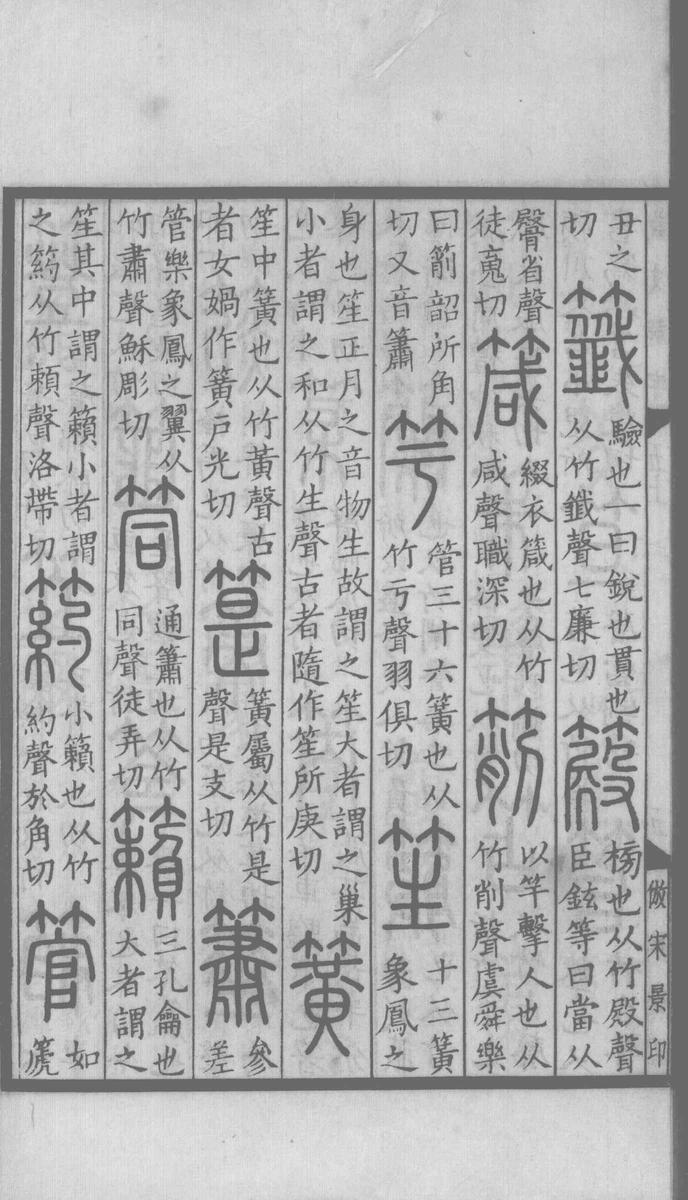 倣宋景印
丑之切 籤 驗也一曰銳也貫也从竹韱聲七廉切 𥴫 榜也从竹殿聲臣鉉等曰當从
臀省聲徒䰟切 箴 綴衣箴也从竹咸聲職深切 箾 以竿擊人也从竹削聲虞舜樂
曰箾韶所角切又音簫 竽 管三十六簧也从竹亏聲羽俱切 笙 十三簧象鳳之
身也笙正月之音物生故謂之笙大者謂之巢小者謂之和从竹生聲古者隨作笙所庚切 簧
笙中簧也从竹黃聲古者女媧作簧戶光切 䈕 簧屬从竹是聲是支切 簫 參差
管樂象鳳之翼从竹肅聲穌彫切 筒 通簫也从竹同聲徒弄切 籟 三孔龠也大者謂之
笙其中謂之籟小者謂之箹从竹賴聲洛帶切 箹 小籟也从竹約聲於角切 管 如篪